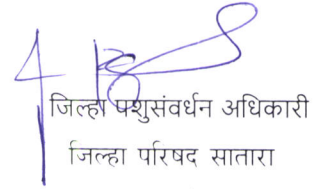 जिल्हा पशुसंवर्धन अधिकारी
जिल्हा परिषद सातारा